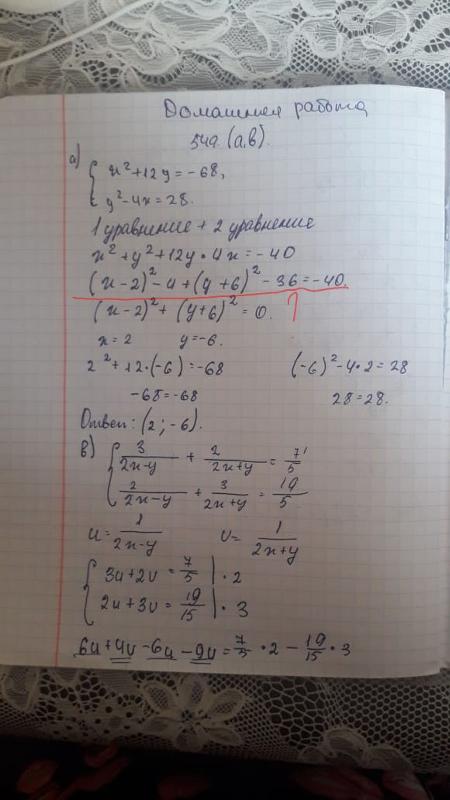 Домашняя работа
549. (а,в).
а) { x² + 12y = -68,
y² - 4x = 28.
1 уравнение + 2 уравнение
x² + y² + 12y · 4x = -40
(x-2)² - 4 + (y+6)² - 36 = -40.
(x-2)² + (y+6)² = 0. ?
x = 2 y = -6.
2² + 12·(-6) = -68 (-6)² - 4·2 = 28
-68 = -68 28 = 28.
Ответ: (2; -6).
в) { 3/(2x-y) + 2/(2x+y) = 7/5
2/(2x-y) + 3/(2x+y) = 19/5
u = 1/(2x-y) v = 1/(2x+y)
{ 3u + 2v = 7/5 | · 2
2u + 3v = 19/15 | · 3
6u + 4v - 6u - 9v = 7/5 · 2 - 19/15 · 3